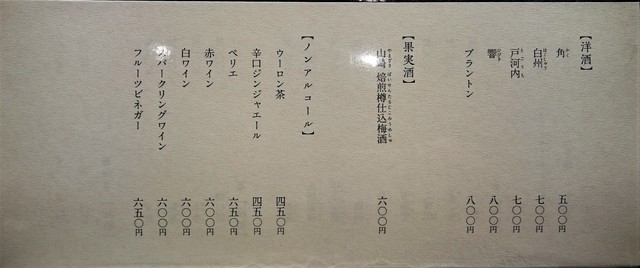 【洋酒】
角 五〇〇円
白州 七〇〇円
戸河内 七〇〇円
響 八〇〇円
ブラントン 八〇〇円
【果実酒】
山崎 焙煎樽仕込梅酒 六〇〇円
【ノンアルコール】
ウーロン茶 四五〇円
辛口ジンジャエール 四五〇円
ペリエ 六五〇円
赤ワイン 六〇〇円
白ワイン 六〇〇円
スパークリングワイン 六〇〇円
フルーツビネガー 六五〇円